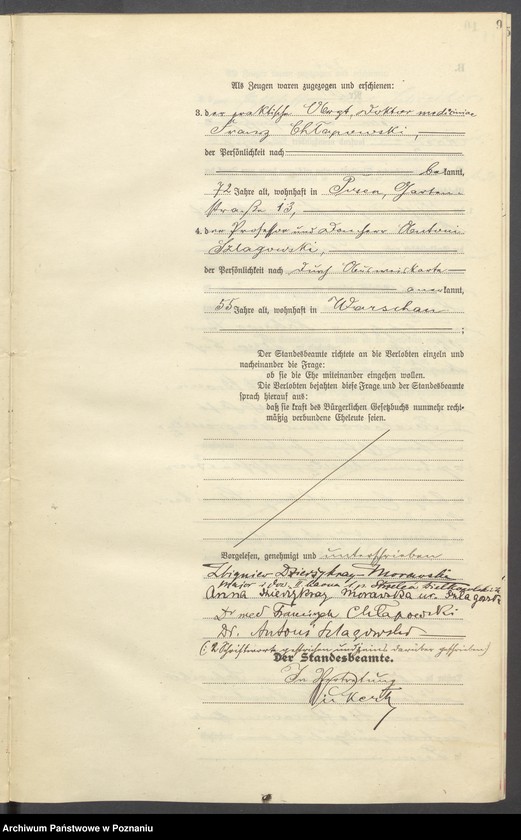 Als Zeugen waren zugezogen und erschienen:
3. der praktische Arzt, Doktor medicinae
Franz Chłapowski,
der Persönlichkeit nach
bekannt,
72 Jahre alt, wohnhaft in Posen, Garten-
straße 13,
4. der Professor und Domherr Antoni
Szlagowski,
der Persönlichkeit nach durch Ausweiskarte
anerkannt,
55 Jahre alt, wohnhaft in Warschau
;
Der Standesbeamte richtete an die Verlobten einzeln und
nacheinander die Frage:
ob sie die Ehe miteinander eingehen wollen.
Die Verlobten bejahten diese Frage und der Standesbeamte
sprach hierauf aus:
daß sie kraft des Bürgerlichen Gesetzbuchs nunmehr recht-
mäßig verbundene Eheleute seien.
Vorgelesen, genehmigt und unterschrieben
Zbigniew Dzierżykraj-Morawski
Major
Anna Dzierżykraj Morawska ur. Szlagowska
Dr med Franciszek Chłapowski
Dr. Antoni Szlagowski
(: 2 Schriftworte gestrichen und eins darüber geschrieben)
Der Standesbeamte.
In Vertretung
Archiwum Państwowe w Poznaniu